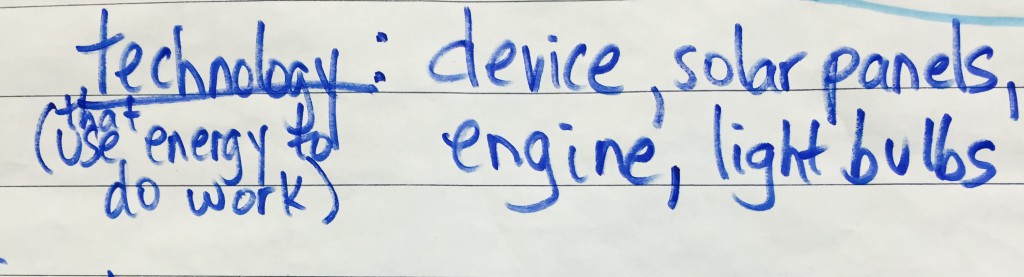 technology: device, solar panels,
(that use energy to engine, light bulbs
do work)